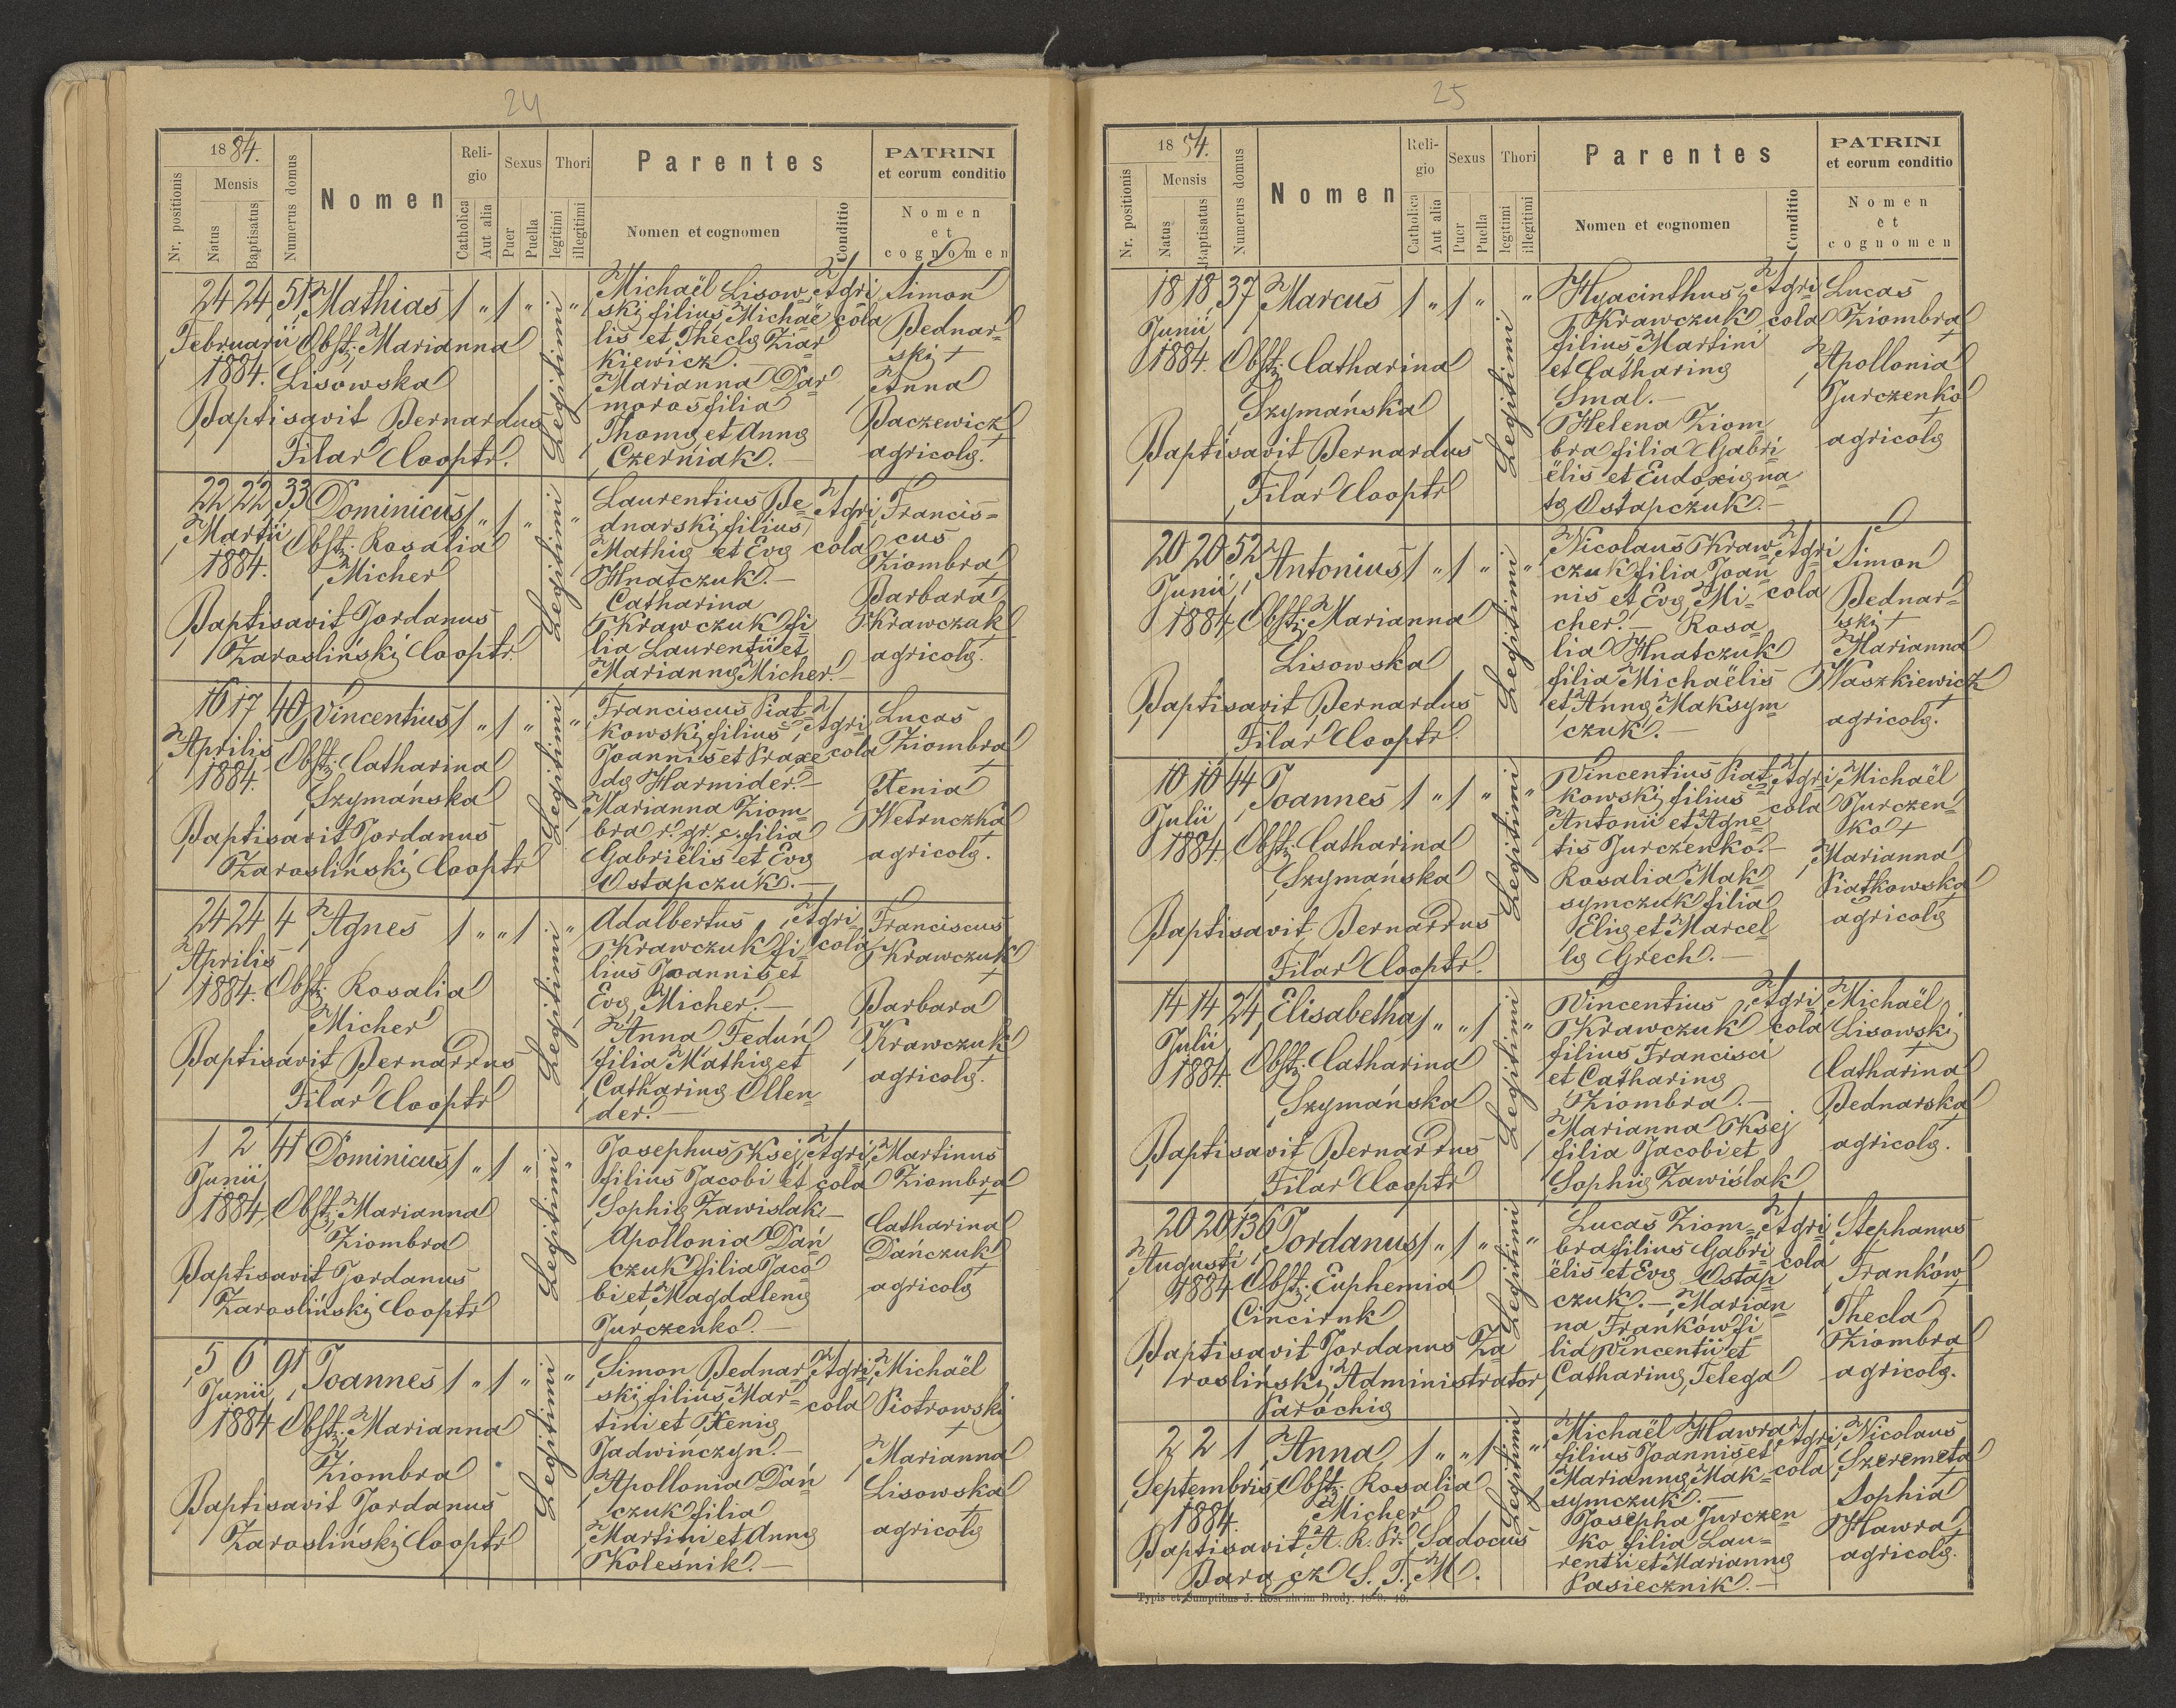 24
1884.
Nr. positionis
Mensis
Natus
Baptisatus
Numerus domus
Nomen
Religio
Catholica
Aut alia
Sexus
Puer
Puella
Thori
legitimi
illegitimi
Parentes
Nomen et cognomen
Conditio
PATRINI
et eorum conditio
Nomen
et
cognomen
24 24 51 Mathias 1 " 1 " "
Februarii Obst: Marianna
1884. Lisowska
Baptisavit Bernardus
Filar Cooptr.
Legitimi
Michaël Lisow
ski filius Michaë
lis et Thecla Ziar
kiewicz.—
Marianna Dar
moros filia
Thoma et Anna
Czerniak.—
Agri
cola
Simon
Bednar-
ski +
Anna
Baczewicz
+
agricola.
22 22 33 Dominicus 1 " 1 " "
Martii Obst: Rosalia
1884. Micher
Baptisavit Jordanus
Zarosliński Cooptr.
Legitimi
Laurentius Be-
dnarski filius
Mathia et Eva
Hnatczuk.—
Catharina
Krawczuk fi
lia Laurentii et
Marianna Micher.—
Agri
cola
Francis=
cus
Ziombra
+
Barbara
Krawczuk
+
agricola.
16 17 40 Vincentius 1 " 1 " "
Aprilis Obst: Catharina
1884. Szymańska
Baptisavit Jordanus
Zarosliński Cooptr
Legitimi
Franciscus Piat=
kowski filius
Joannis et Praxe
da Harmider.—
Marianna Ziom=
bra r. gr. c. filia
Gabriëlis et Eva
Ostapczuk.—
Agri
cola
Lucas
Ziombra
+
Xenia
Wetruczka
+
agricola.
24 24 4 Agnes 1 " " 1 "
Aprilis
1884. Obst: Rosalia
Micher
Baptisavit Bernardus
Filar Cooptr
Legitimi
Adalbertus
Krawczuk fi-
lius Joannis et
Eva Micher.—
Anna Fedun
filia Mathia et
Catharina Ollen=
der.—
Agri-
cola
Franciscus
Krawczuk
+
Barbara
Krawczuk
+
agricola.
1 2 41 Dominicus 1 " 1 " "
Junii
1884 Obst: Marianna
Ziombra
Baptisavit Jordanus
Zarosliński Cooptr
Legitimi
Josephus Ksej
filius Jacobi et
Sophia Zawislak—
Apollonia Dań
czuk filia Jaco
bi et Magdalena
Jurczenko.—
Agri
cola
Martinus
Ziombra
+
Catharina
Dańczuk
+
agricola
5 6 91 Joannes 1 " 1 " "
Junii
1884 Obst: Marianna
Ziombra
Baptisavit Jordanus
Zarosliński Cooptr
Legitimi
Simon Bednar
ski filius Mar=
tini et Xenia
Jadwinczyn.—
Apollonia Dań
czuk filia
Martini et Anna
Kolesnik.—
Agri
cola
Michaël
Piotrowski
+
Marianna
Lisowska
+
agricola
25
1884.
Nr. positionis
Mensis
Natus
Baptisatus
Numerus domus
Nomen
Religio
Catholica
Aut alia
Sexus
Puer
Puella
Thori
legitimi
illegitimi
Parentes
Nomen et cognomen
Conditio
PATRINI
et eorum conditio
Nomen
et
cognomen
18 18 37 Marcus 1 " 1 " "
Junii
1884. Obst: Catharina
Szymańska
Baptisavit Bernardus
Filar Cooptr
Legitimi
Hyacinthus
Krawczuk
filius Martini
et Catharina
Smal.—
Helena Ziom=
bra filia Gabri
ëlis et Eudoxia na
ta Ostapczuk.—
Agri-
cola
Lucas
Ziombra
+
Apollonia
Jurczenko
+
agricola
20 20 52 Antonius 1 " 1 " "
Junii
1884 Obst: Marianna
Lisowska
Baptisavit Bernardus
Filar Cooptr.
Legitimi
Nicolaus Kraw
czuk filia Joan
nis et Eva Mi=
cher.— Rosa=
lia Hnatczuk
filia Michaëlis
et Anna Maksym=
czuk.—
Agri
cola
Simon
Bednar=
ski +
Marianna
Waszkiewicz
+
agricola.
10 10 44 Joannes 1 " 1 " "
Julii
1884 Obst: Catharina
Szymańska
Baptisavit Bernardus
Filar Cooptr.
Legitimi
Vincentius Piat
kowski filius
Antonii et Agne
tis Jurczenko.—
Rosalia Mak=
symczuk filia
Elia et Marcel=
la Grech.—
Agri
cola
Michaël
Jurczen=
ko +
Marianna
Piatkowska
+
agricola
14 14 24 Elisabetha 1 " " 1 "
Julii
1884. Obst: Catharina
Szymańska
Baptisavit Bernardus
Filar Cooptr
Legitimi
Vincentius
Krawczuk
filius Francisci
et Catharina
Ziombra.—
Marianna Ksej
filia Jacobi et
Sophia Zawiślak
Agri
cola
Michaël
Lisowski
+
Catharina
Bednarska
+
agricola.
20 20 136 Jordanus 1 " 1 " "
Augusti
1884 Obst: Euphemia
Cinciruk
Baptisavit Jordanus Za
rosliński Administrator
Parochia
Legitimi
Lucas Ziom=
bra filius Gabri=
ëlis et Eva Ostap
czuk.— Marian=
na Franków fi=
lia Vincentii et
Catharina Telega
Agri
cola
Stephanus
Franków
+
Thecla
Ziombra
+
agricola.
2 2 1 Anna 1 " " 1 "
Septembris Obst: Rosalia
1884. Micher
Baptisavit A. R. Pr. Sadocus
Barącz S. T. M.
Legitimi
Michaël Hawra
filius Joannis et
Marianna Mak=
symczuk.—
Josepha Jurczen
ko filia Lau=
rentii et Marianna
Pasiecznik.—
Agri
cola
Nicolaus
Szeremeta
+
Sophia
Hawra
+
agricola.
Typis et Sumptibus J. Rosenheim Brody.